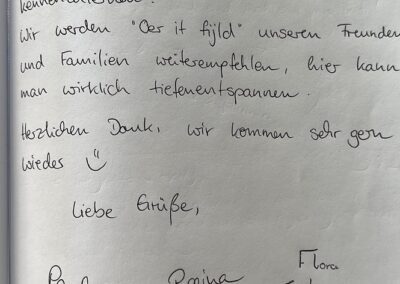 Wir werden "Oer it fijld" unseren Freunden
und Familien weiterempfehlen, hier kann
man wirklich tiefenentspannen.
Herzlichen Dank, wir kommen sehr gern
wieder
Liebe Grüße,
Flora
Romina